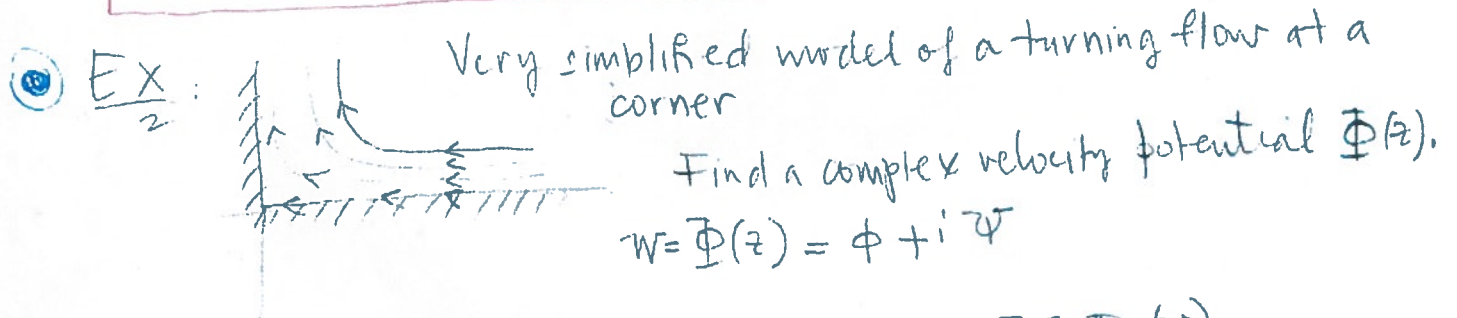 EX 2 : Very simplified model of a turning flow at a
corner
Find a complex velocity potential Φ(z).
W = Φ(z) = ϕ + i Ψ